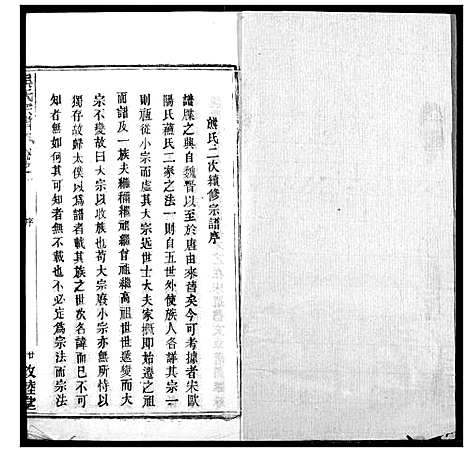 熊氏二次續修宗譜序
譜牒之興自魏晉以至於唐由來舊矣今可考者宋歐
陽氏蘇氏二家之法一則自五世外使族人各詳其宗一
則隨從小宗而虛其大宗近世士大夫家概即始遷之祖
而譜及一族夫繼禰繼祖繼曾祖繼高祖世世遞變而大
宗不變故曰大宗以收族也苟大宗廢小宗亦無所恃以
獨存故歸太僕以為譜者載其族之世次名諱而已不可
知者無如何其可知者無不載也不必定為宗法而宗法
序
敦睦堂